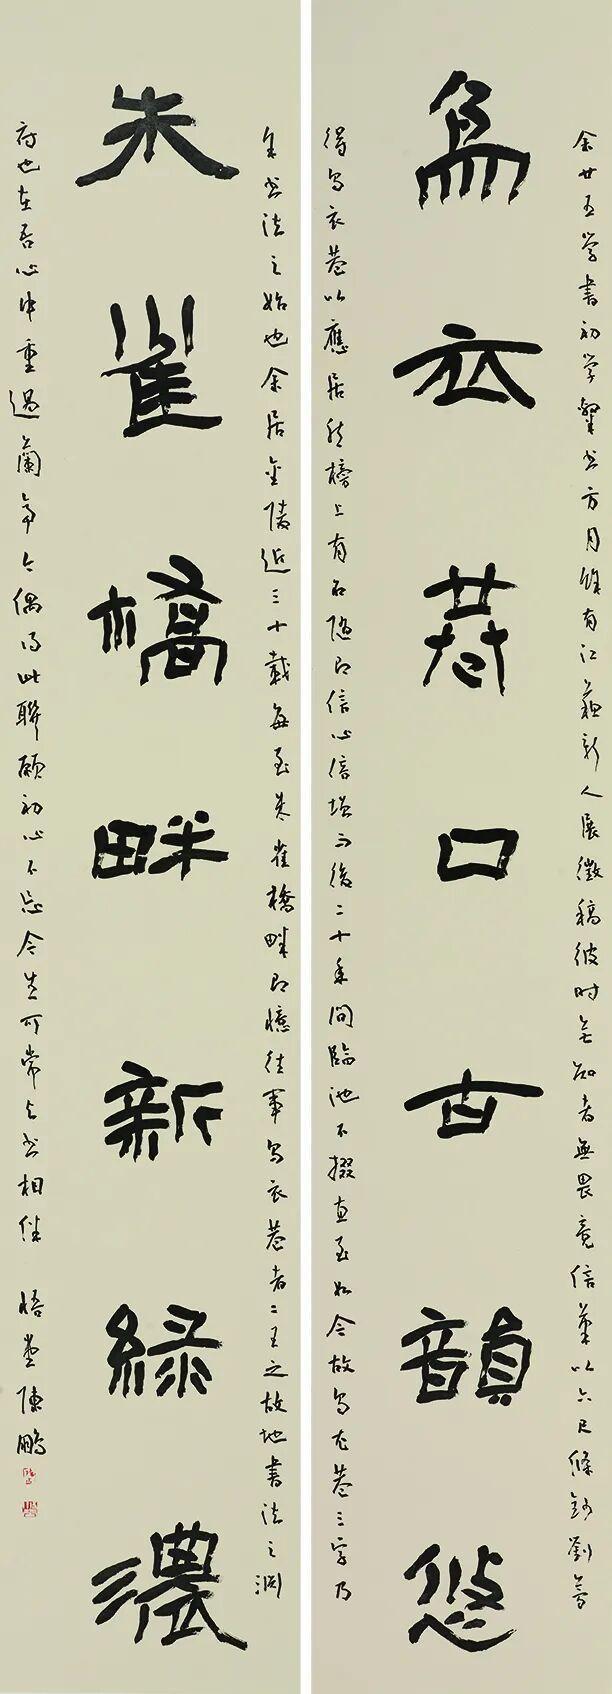 余廿五學書初學隸书方月餘有江蘇新人展徵稿彼时無知者無畏竟信筆以六尺條鈔劉夢
烏衣巷口古韻悠
得烏衣巷以應居然榜上有名隨即信心倍增而後二十年间臨池不掇直至如今故烏衣巷三字乃
余书法之始也余居金陵近三十載每至朱雀橋畔即憶往事烏衣巷者二王之故地書法之渊
朱雀橋畔新綠濃
府也在吾心中重過蘭亭今偶得此聯願初心不忘今生可常与书相伴 悟堂陳鵬